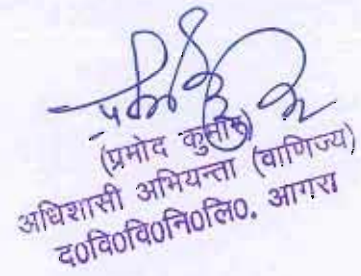 (प्रमोद कुमार)
अधिशासी अभियन्ता (वाणिज्य)
द0वि0वि0नि0लि0. आगरा